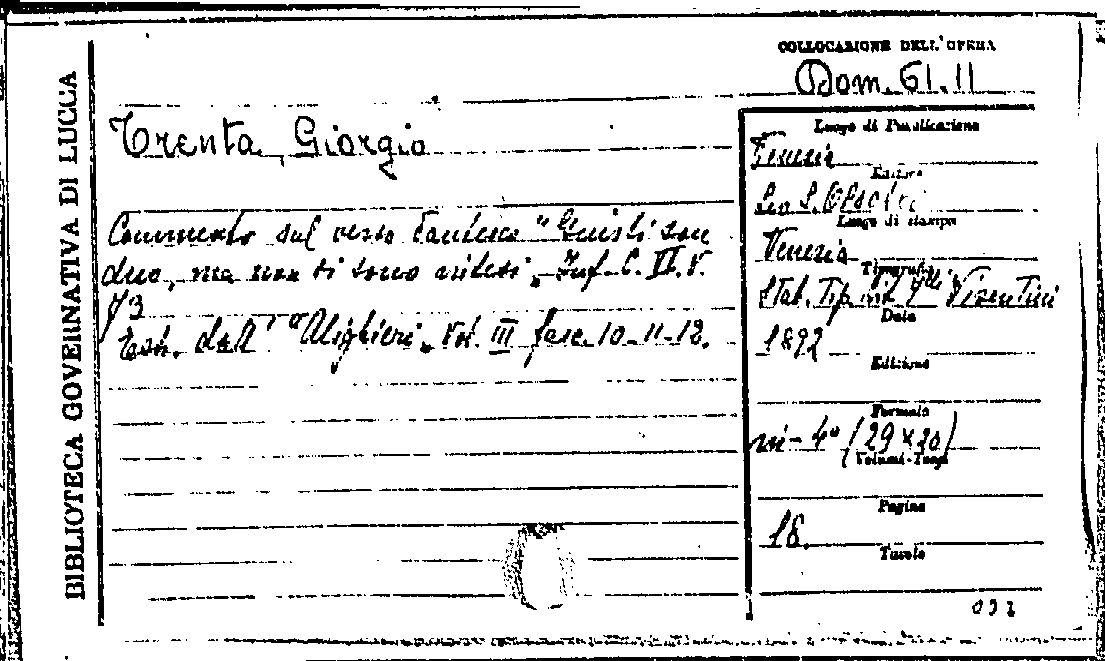 BIBLIOTECA GOVERNATIVA DI LUCCA
COLLOCAZIONE DELL'OPERA
Dom. 61.11
Trenta, Giorgio
Commento sul verso dantesco "Giusti son
duo, ma non vi sono intesi" Inf. C. VI. v.
73
Estr. dall' "Alighieri" Vol. III fasc. 10-11-12.
Luogo di Pubblicazione
Venezia
Editore
Leo S. Olschki
Luogo di stampa
Venezia
Tipografia
Stab. Tip. Visentini
Data
1892
Edizione
Formato
in-4° (29×20)
Volumi-Tomi
Pagine
18.
Tavole